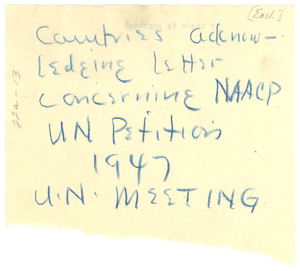 [Encl.]
Countries acknow-
ledging letter
concerning NAACP
UN Petition
1947
U.N. MEETING